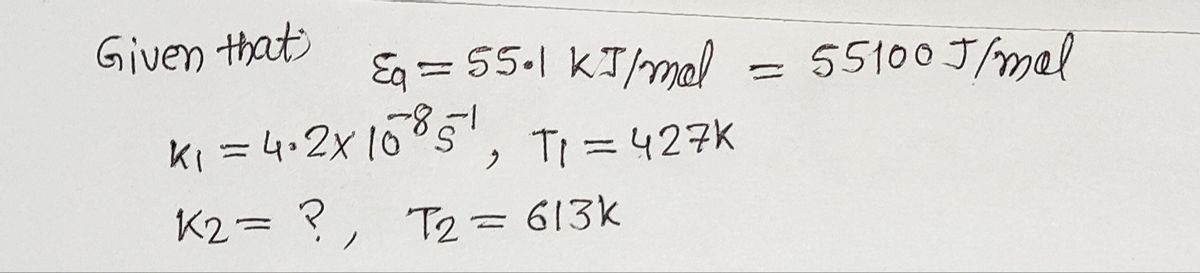 Given that) Ea = 55.1 kJ/mol = 55100 J/mol
K1 = 4.2 x 10⁻⁸ s⁻¹, T1 = 427K
K2 = ?, T2 = 613K